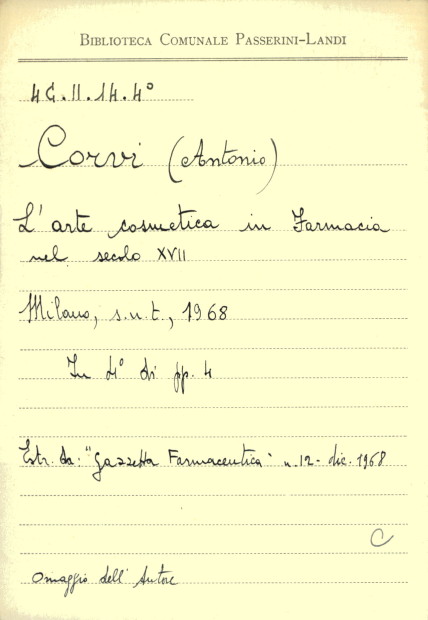 BIBLIOTECA COMUNALE PASSERINI-LANDI
4G.II.14.4°
Corvi (Antonio)
L'arte cosmetica in Farmacia
nel secolo XVII
Milano, s.n.t., 1968
In 4° di pp. 4
Estr. da: "Gazzetta Farmaceutica" n. 12 - dic. 1968
C
Omaggio dell'Autore